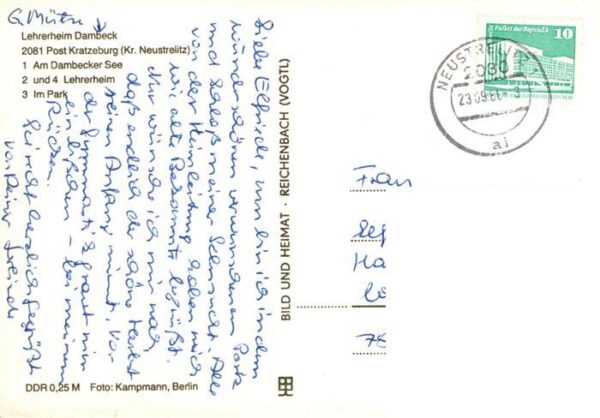 G. Mütze
Lehrerheim Dambeck
2081 Post Kratzeburg (Kr. Neustrelitz)
1 Am Dambecker See
2 und 4 Lehrerheim
3 Im Park
Liebe Elfriede, nun bin ich in dem
wunderschönen verwunschenen Park
und Schloß meiner Sehnsucht. Alle
von der Heimleitung haben mich
wie alte Bekannte begrüßt.
Nur wünsche ich mir noch,
daß endlich der schöne Herbst
seinen Anfang nimmt. Vor
der Gymnastik graut mir
ein bißchen – bei meinem
Rücken.
Sei recht herzlich gegrüßt
von Deiner
DDR 0,25 M Foto: Kampmann, Berlin
BILD UND HEIMAT · REICHENBACH (VOGTL)
Palast der Republik 10
DDR
NEUSTRELITZ 1
2080
23.09.
aj
Frau
Ha
78